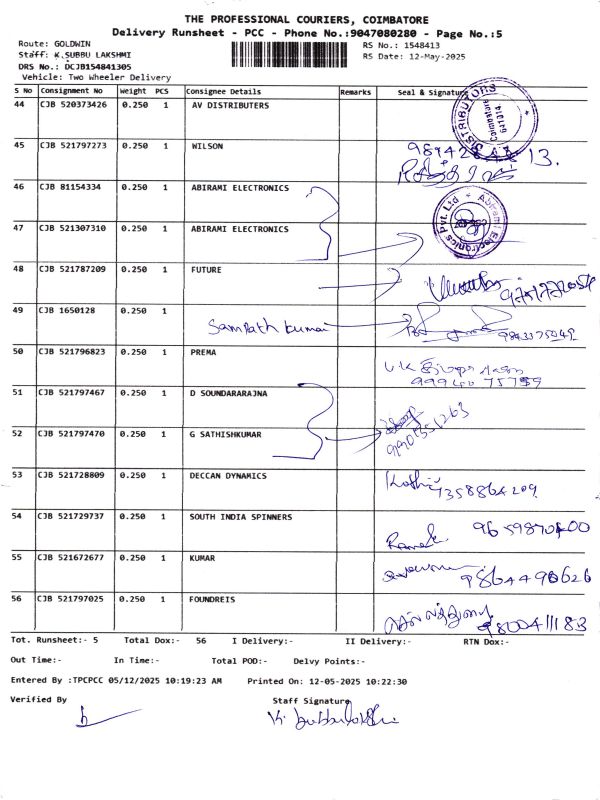 THE PROFESSIONAL COURIERS, COIMBATORE
Delivery Runsheet - PCC - Phone No.:9047080280 - Page No.:5
Route: GOLDWIN
RS No.: 1548413
Staff: K.SUBBU LAKSHMI
RS Date: 12-May-2025
DRS No.: DCJB154841305
Vehicle: Two Wheeler Delivery
S No Consignment No Weight PCS Consignee Details Remarks Seal & Signature
44 CJB 520373426 0.250 1 AV DISTRIBUTERS
DISTRIBUTORS
Coimbatore
641014.
45 CJB 521797273 0.250 1 WILSON
46 CJB 81154334 0.250 1 ABIRAMI ELECTRONICS
Abirami Electronics Pvt. Ltd
47 CJB 521307310 0.250 1 ABIRAMI ELECTRONICS
48 CJB 521787209 0.250 1 FUTURE
49 CJB 1650128 0.250 1
Sampath kumar
50 CJB 521796823 0.250 1 PREMA
51 CJB 521797467 0.250 1 D SOUNDARARAJNA
52 CJB 521797470 0.250 1 G SATHISHKUMAR
53 CJB 521728809 0.250 1 DECCAN DYNAMICS
7358864209
54 CJB 521729737 0.250 1 SOUTH INDIA SPINNERS
Ramesh
55 CJB 521672677 0.250 1 KUMAR
9864490626
56 CJB 521797025 0.250 1 FOUNDREIS
9800411183
Tot. Runsheet:- 5 Total Dox:- 56 I Delivery:- II Delivery:- RTN Dox:-
Out Time:- In Time:- Total POD:- Delvy Points:-
Entered By :TPCPCC 05/12/2025 10:19:23 AM Printed On: 12-05-2025 10:22:30
Verified By Staff Signature
K. Subbulakshmi